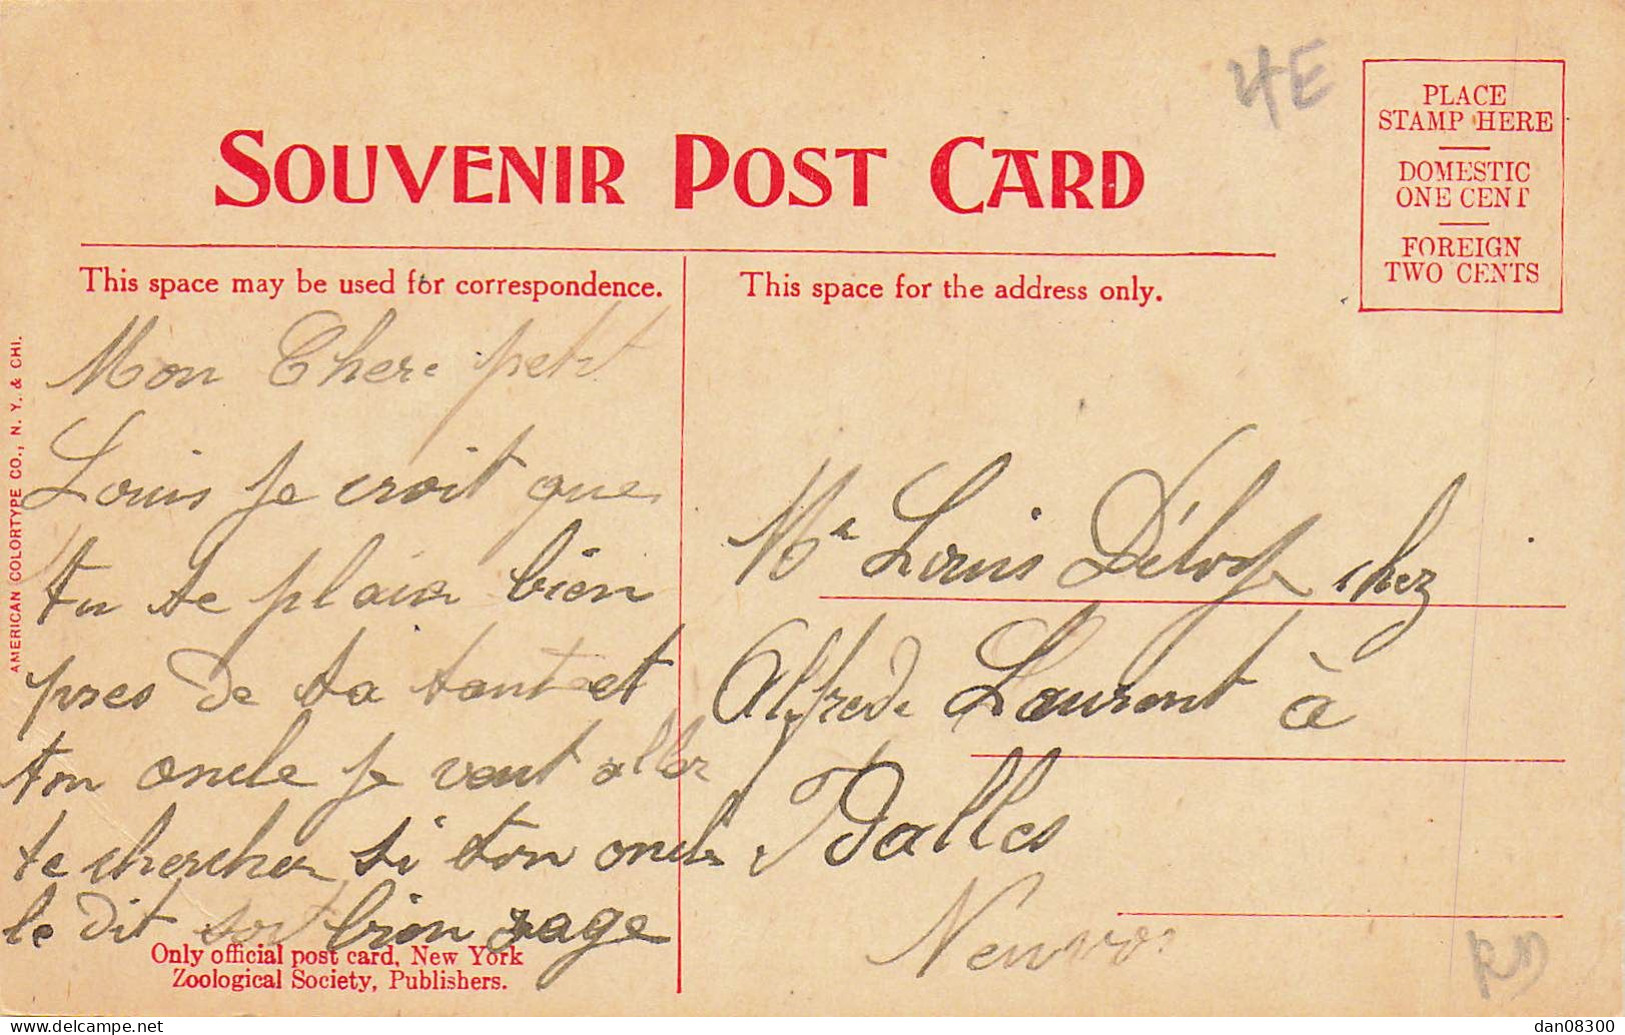 4E
SOUVENIR POST CARD
PLACE
STAMP HERE
DOMESTIC
ONE CENT
FOREIGN
TWO CENTS
This space may be used for correspondence.
This space for the address only.
Mon Chere petit
Louis je croit que
tu te plain bien
pres de ta tante et
ton oncle je veut aller
te chercher si ton oncle
le dit soit bien sage
Mr Louis chez
Alfrede Laurent à
Balles
AMERICAN COLORTYPE CO., N. Y. & CHI.
Only official post card, New York
Zoological Society, Publishers.
RD
dan08300